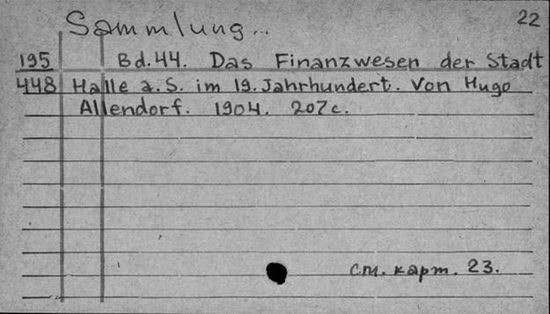 22
Sammlung..
195 Bd.44. Das Finanzwesen der Stadt
448 Halle a.S. im 19. Jahrhundert. Von Hugo
Allendorf. 1904. 207с.
см. карт. 23.